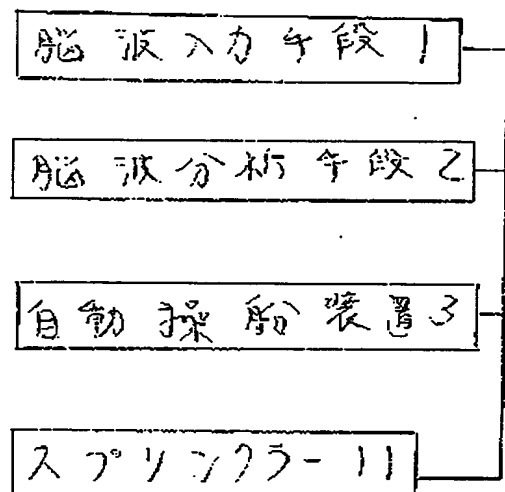 脳波入力手段1
脳波分析手段2
自動操船装置3
スプリンクラー11